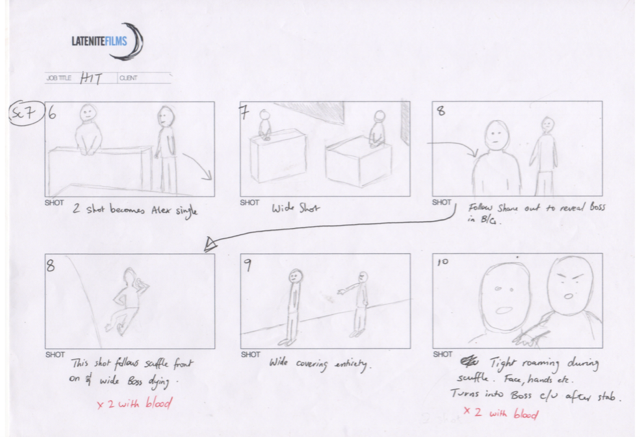 LATENITEFILMS
JOB TITLE HIT CLIENT
Sc 7
6
7
8
SHOT 2 shot becomes Alex single
SHOT Wide Shot
SHOT Follow Shane out to reveal Boss
in B/G.
8
9
10
SHOT
This shot follows scuffle front
on & wide Boss dying.
x 2 with blood
SHOT
Wide covering entirety.
SHOT
Tight roaming during
scuffle. Face, hands etc.
Turns into Boss c/u after stab.
x 2 with blood